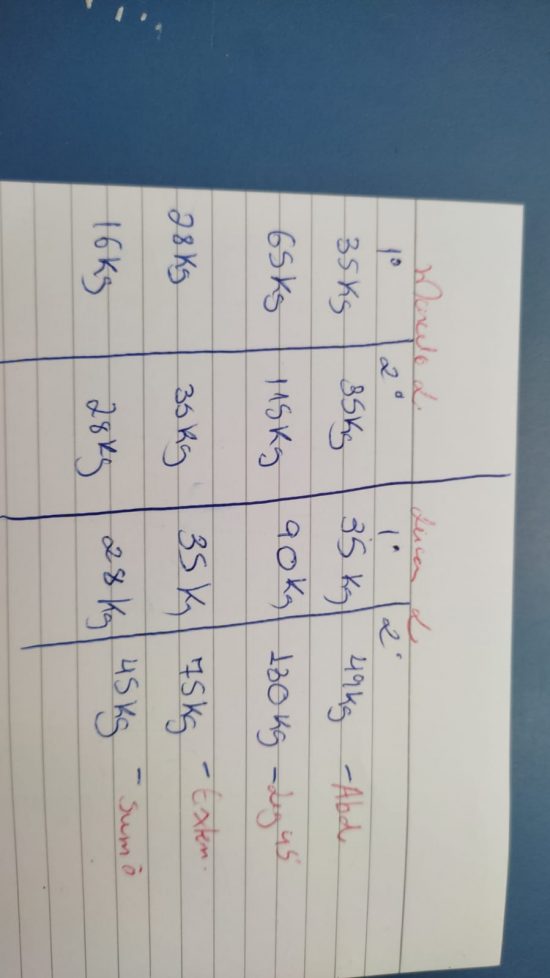 Marcelo L. Lucas L
1° 2° 1° 2°
35Kg 35Kg 35Kg 49Kg - Abd
65Kg 115Kg 90Kg 130Kg - Leg 45°
28Kg 35Kg 35Kg 75Kg - Exten.
16Kg 28Kg 28Kg 45Kg - Sumô